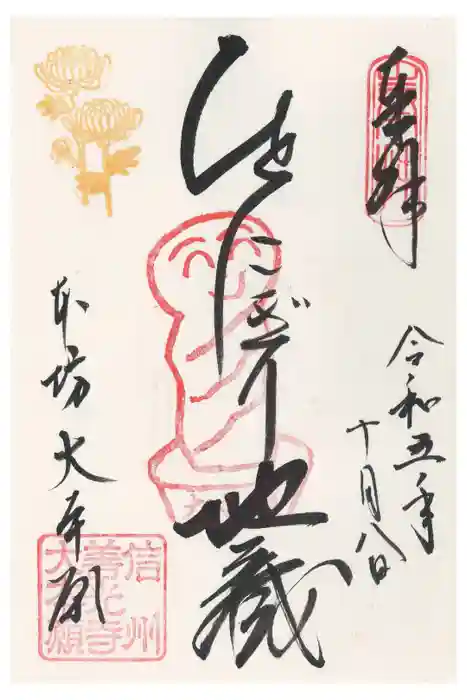 奉拝
令和五年
十月八日
ひとにぎり地蔵
本坊大本願
信州
善光寺
大本願